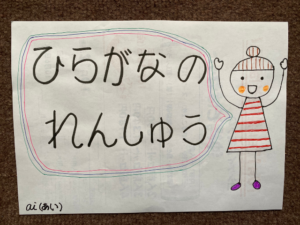 ひらがなの
れんしゅう
ai(あい)